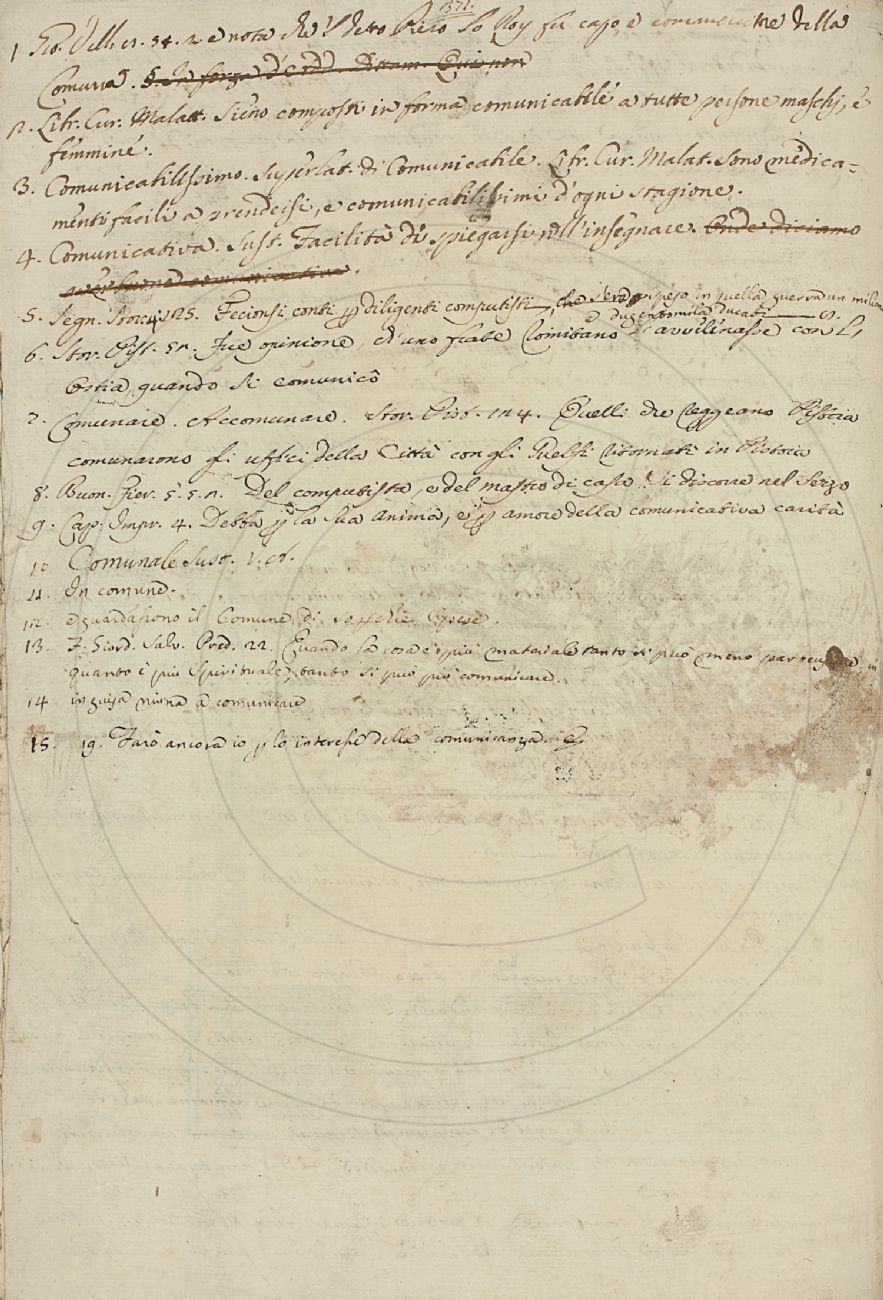 371.
1 Gio. Vill. 12. 54. 2 e nota che 'l detto Piero Lo Roy fu capo, e commovitore della
Comuna.
2. Libr. Cur. Malatt. Sieno composti in forma comunicabile a tutte persone maschj, e
femmine.
3. Comunicabilissimo. Superlat. di Comunicabile. Libr. Cur. Malat. Sono medica=
menti facili a prendersi, e comunicabilissimi d'ogni stagione.
4. Comunicativa. Sust. Facilità di spiegarsi nell'insegnare. Onde diciamo
aver buona comunicativa.
5. Segn. Stor. 4. 125. Feciensi conti p diligenti computisti, che s'era speso in quella guerra un milione
e dugentomila ducati
6. Stor. Pist. 51. Fue opinione, ch'uno frate l'avvelenasse con l'
Ostia quando si comunicò
7. Comunare. Accomunare. Stor. Pist. 124. Quelli che reggeano Pistoia
comunarono gli uffici della Città con gli Guelfi ritornati in Pistoia
8. Buon. Fier. 5. 5. 1. Del computista, e del mastro di casa Si discorre nel
9. Cap. Impr. 4. Debba p la sua anima, e p amore della comunicativa carità
10 Comunale Sust. V. A.
11. In comune.
12. e guardasono il Comune di soperchie spese.
13. F. Giord. Salv. Pred. 22. Quando la cosa è più materiale tanto si può meno
quanto è più Spirituale, tanto si può più comunicare.
14 in guisa niuna a comunicare
15. 19. Farò ancora io p lo interesse della comunicanza.